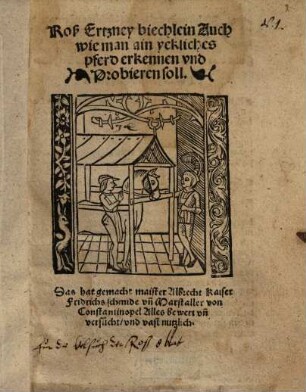 Roß Ertzney biechlein Auch
wie man ain yekliches
pferd erkennen vnd
Probieren soll.
Das hat gemacht maister Albrecht Kaiser
Fridrichs schmide vñ Marstaller von
Constantinopel Alles bewert vñ
versůcht / vnd vast nutzlich